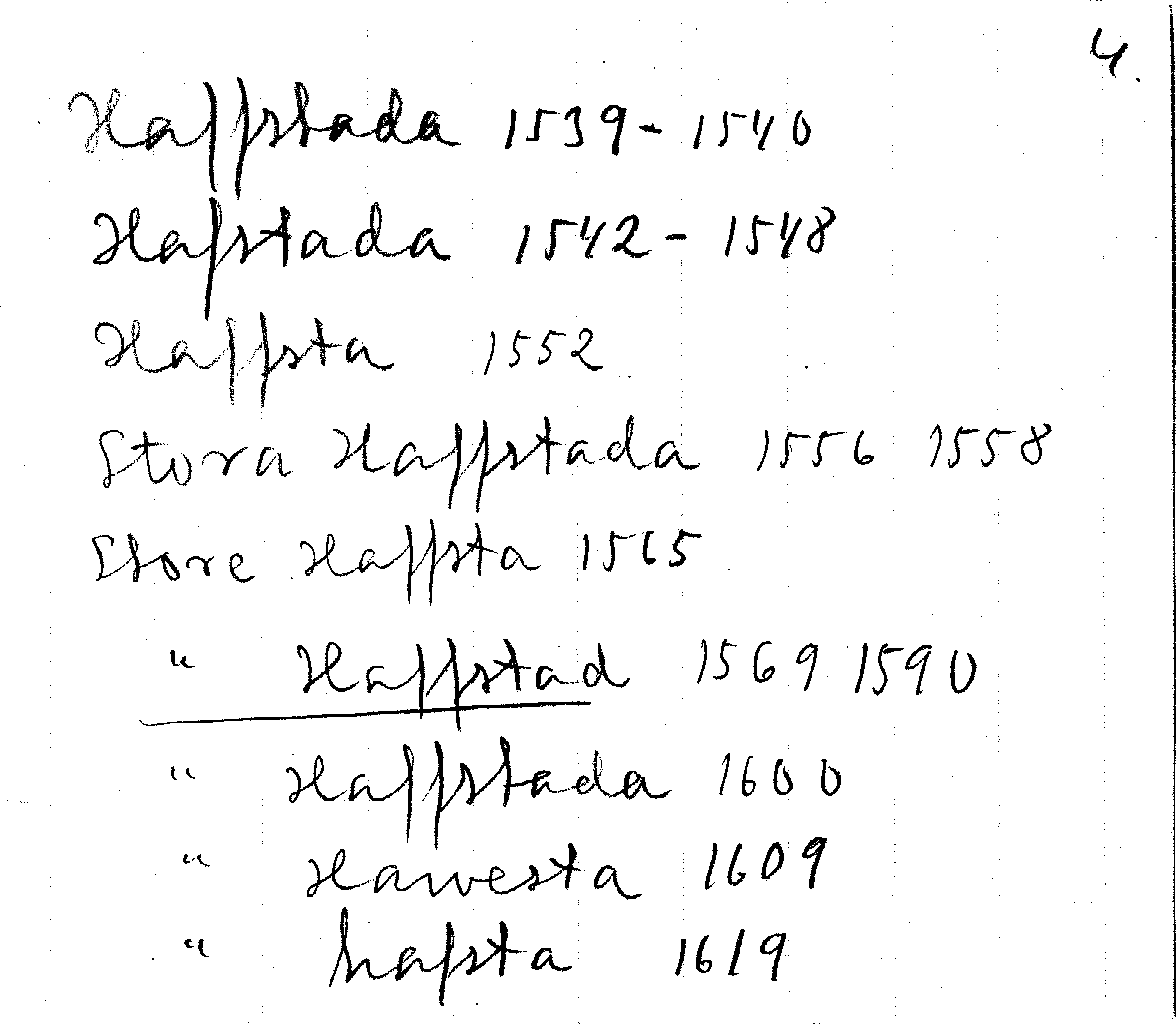 4.
Haffstada 1539 - 1540
Hafstada 1542 - 1548
Haffsta 1552
Stora Haffstada 1556 1558
Store Haffsta 1565
" Haffstad 1569 1590
" Haffstada 1600
" Hawesta 1609
" hafsta 1619